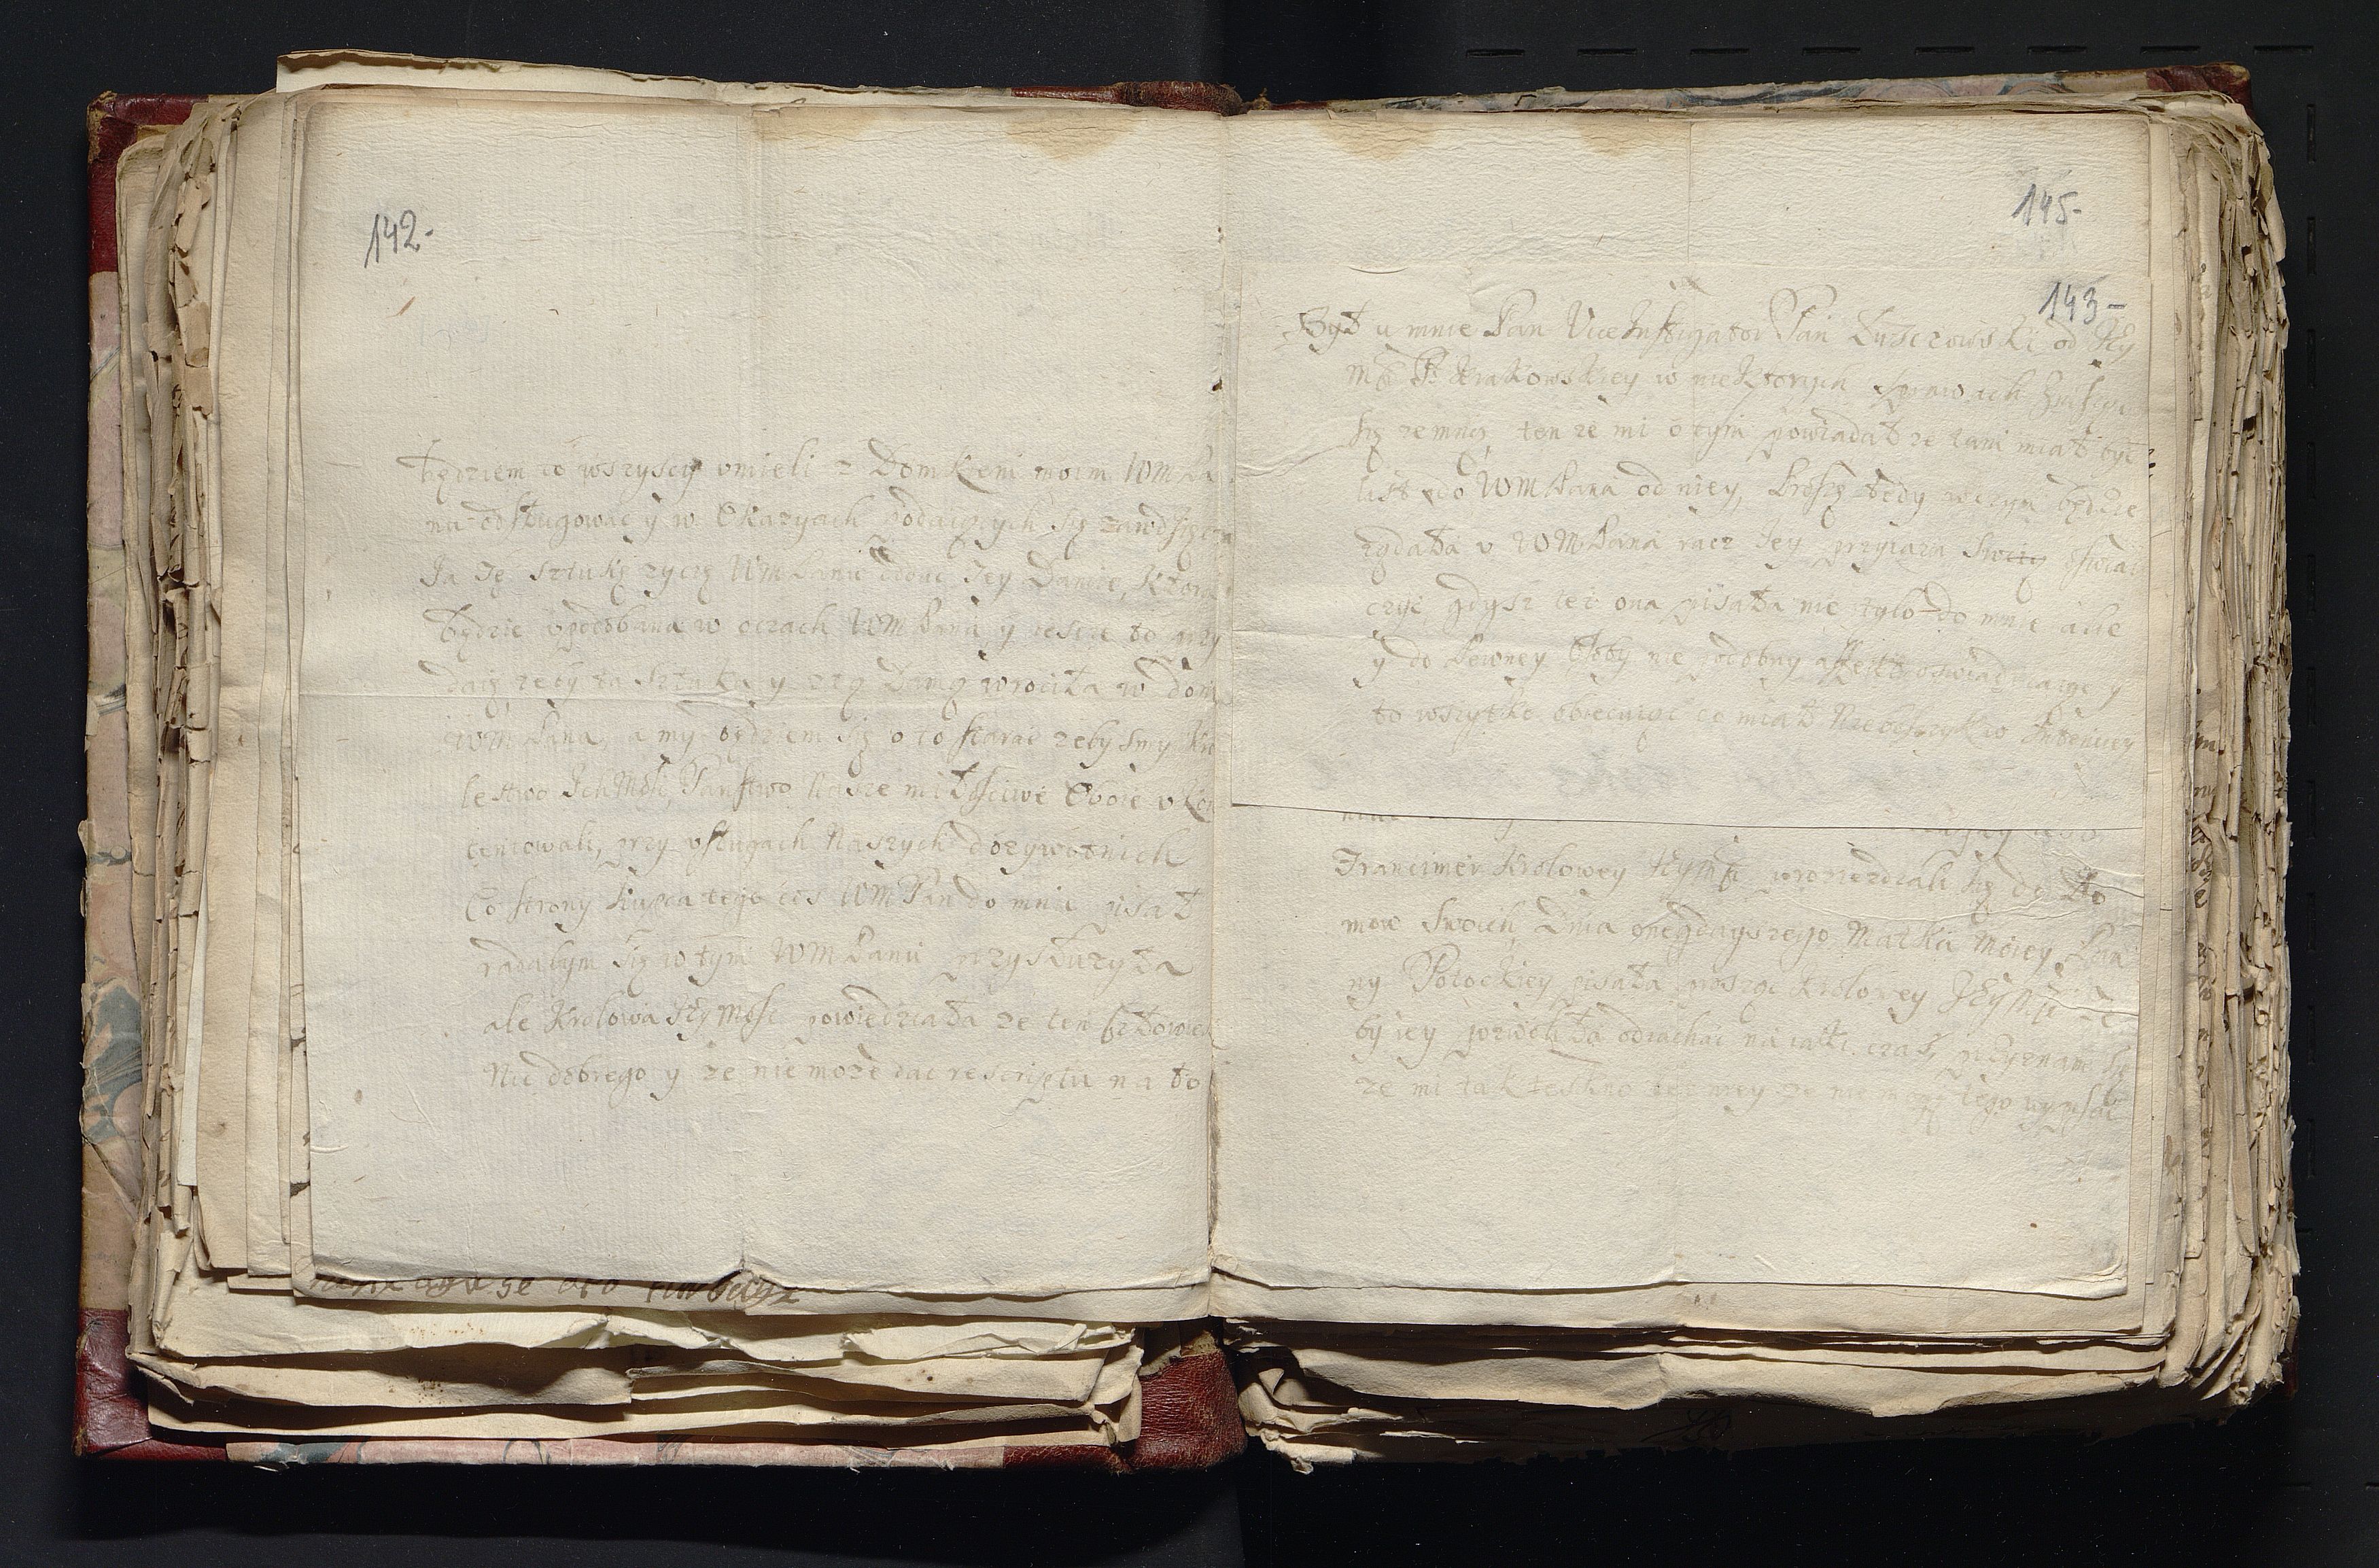 142-
będziem to wszyscy umieli z Domkiem moim WM Pa
na odsługować y w Okazyach podaiących się
Ja Tę sztukę zyczę WM Panu Jey Damie, ktora
będzie upodobana w oczach WM Pana y iesce to przy
daię zeby ta sztuka y z tą Damą wrociła w dom
WM Pana, a my będziem się o to starac zeby smy Kro
lestwo IchMość Państwo Nasze miłosciwe Oboie u Kon
tentowali, przy usługach Naszych dozywotnich
Co strony kupca tego cos WM Pan do mnie pisał
radabym się w tym WM Panu przysłuzyła
ale Krolowa JeyMość powiedziała ze ten człowiek
Nic dobrego y ze nie moze dac rescriptu na to
145-
143-
Był u mnie Pan ViceInstigator Pan od Jey
Mci P. Krakowskiey w niektorych sprawach
się zemną, ten ze mi o tym powiadał ze tam miał być
list do WM Pana od niey, Proszę tedy w czym będzie
ządała u WM Pana racz Jey przyiazn swoię oswiad
czyć gdysz tez ona pisała nie tylo do mnie ale
y do Pewney Osoby nie podobny affekt oswiadczaiąc y
to wszytko obiecuiąc co miał Nieboszczyk w Intencyey
Francimer Krolowey JeyMci porozjezdzali się do Do
mow swoich, Dnia onegdayszego Matka moiey Pan
ny Potockiey pisała prosząc Krolowey JeyMci
by iey pozwoliła odiachać na iaki czas, przyznam się
ze mi tak teskno bez niey ze nie mogę tego wypisać